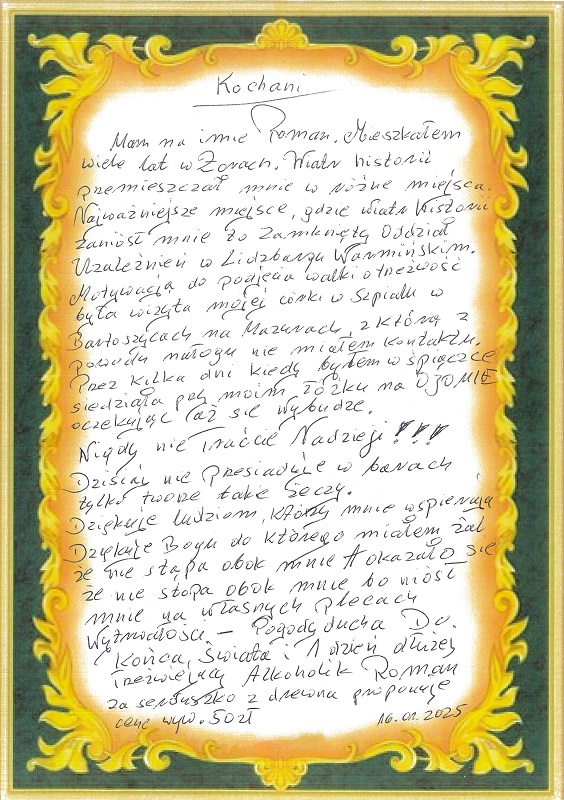 Kochani
Mam na imie Roman. Mieszkałem
wiele lat w Żorach. Wiatr historii
przemieszczał mnie w różne miejsca.
Najważniejsze miejsce, gdzie wiatr historii
zaniósł mnie to Zamknięty Oddział
Uzależnień w Lidzbargu Warmińskim.
Motywacją do podjęcia walki o trzeźwość
była wizyta mojej córki w Szpitalu w
Bartoszycach na Mazurach, z którą z
powodu nałogu nie miałem kontaktu.
Przez kilka dni kiedy byłem w śpiączce
siedziała przy moim łóżku na OJOMIE
oczekując aż się wybudzę.
Nigdy nie Traćcie Nadzieji!!!
Dzisiaj nie Przesiaduje w barach
tylko tworze takie rzeczy.
Dziękuje ludziom, którzy mnie wspierają
Dziękuje Bogu do którego miałem żal
że nie stąpa obok mnie A okazało się
że nie stąpa obok mnie bo niósł
mnie na własnych plecach
Wytrwałości – Pogody ducha Do
Końca, Świata i 1 dzień dłużej
Trzeźwiejący Alkoholik Roman
za serduszko z drewna proponuje
cene wyw. 50zł 16.01.2025